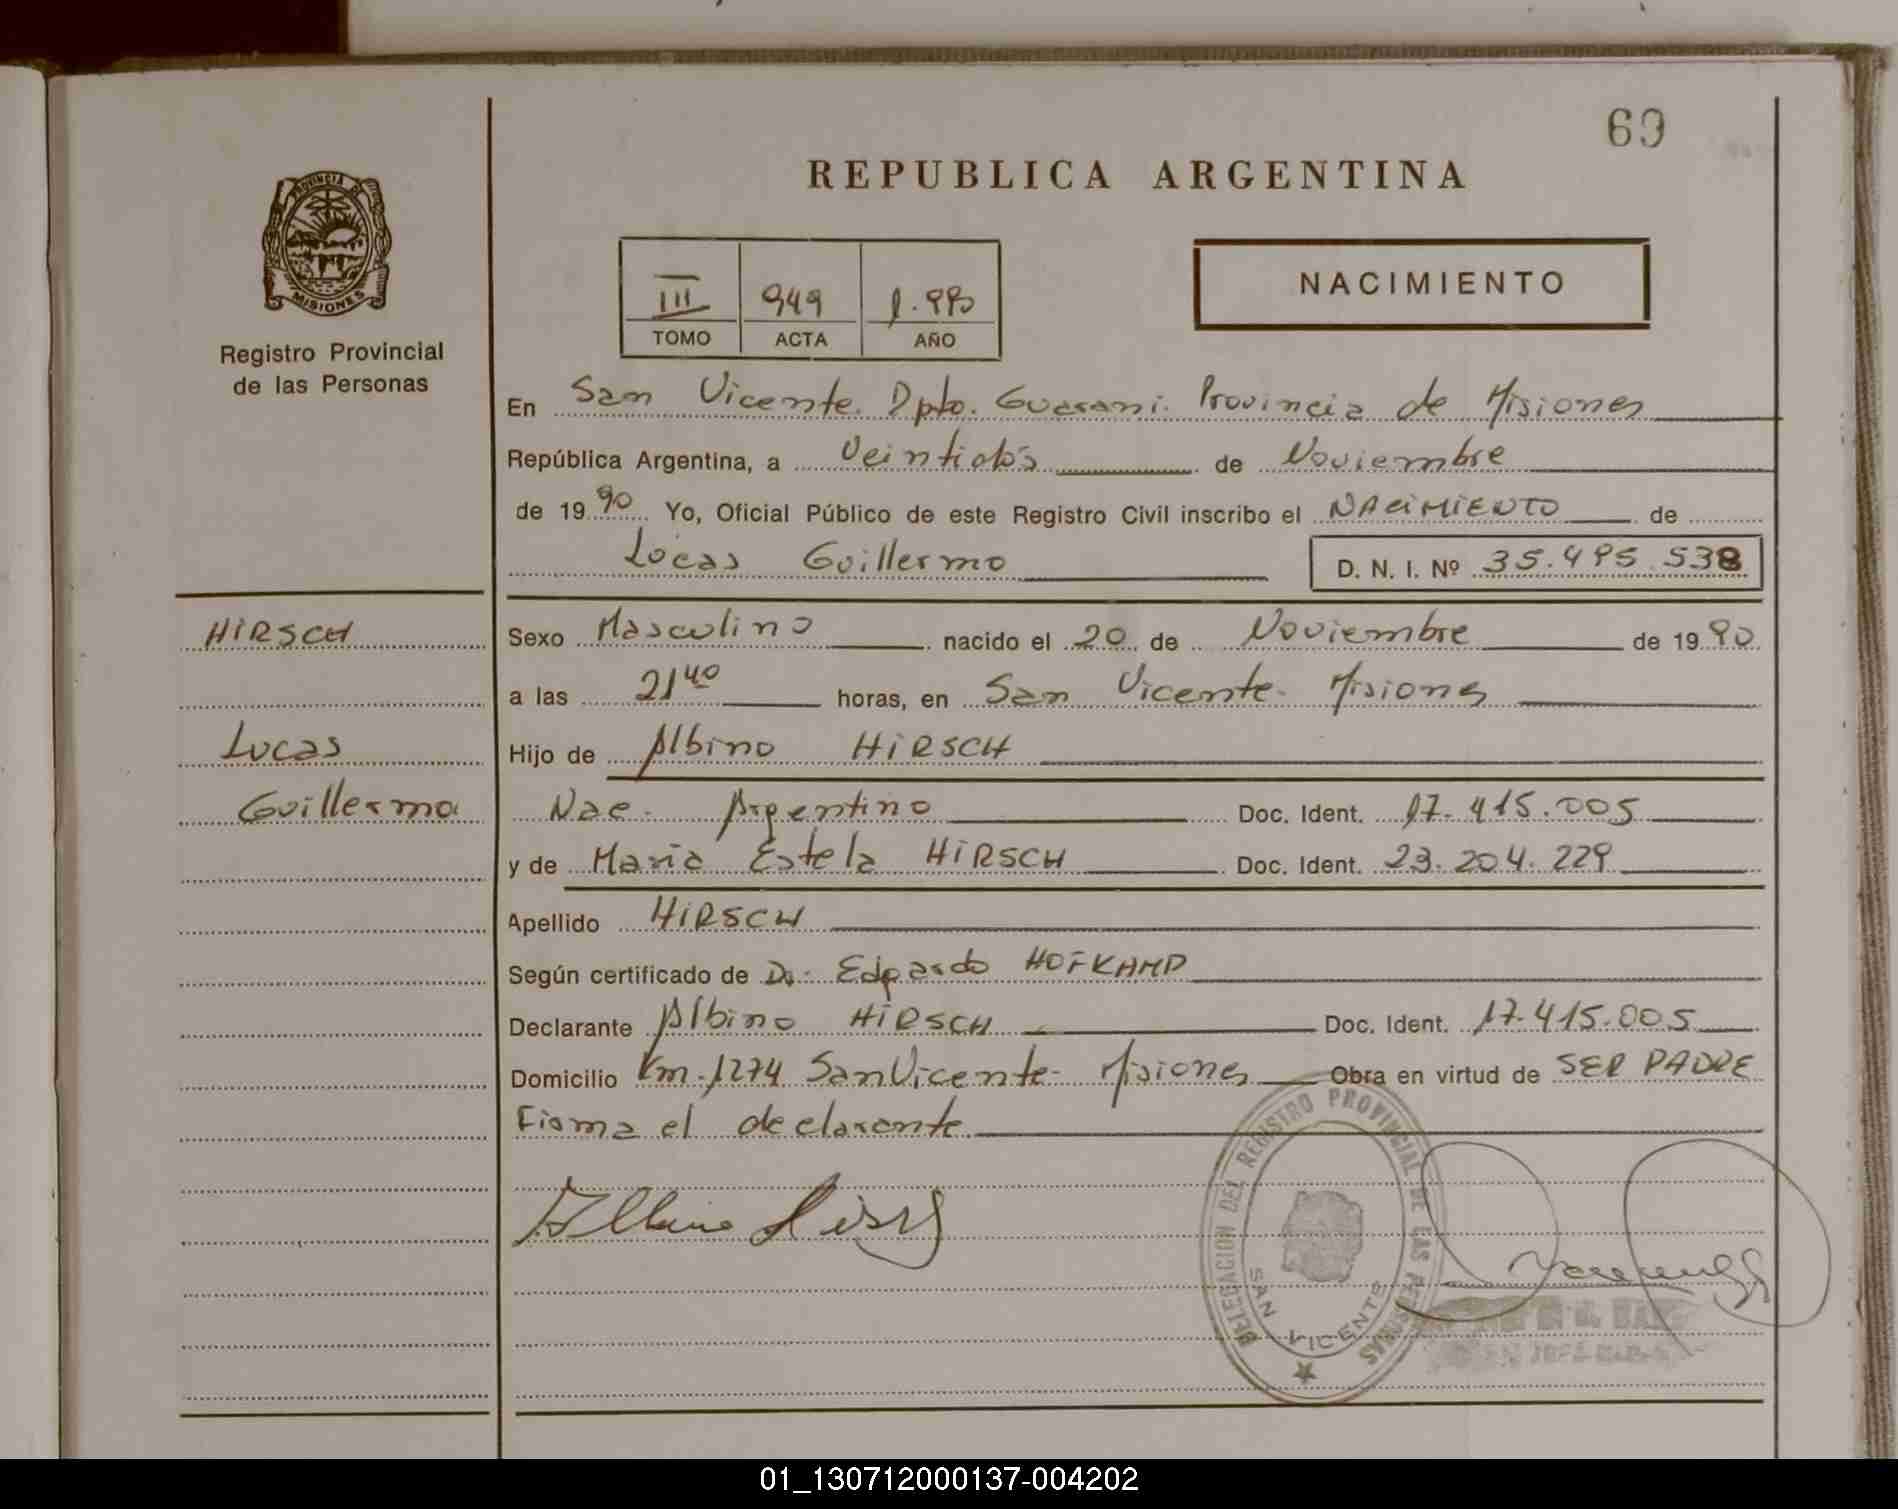 69
REPUBLICA ARGENTINA
PROVINCIA DE
MISIONES
Registro Provincial
de las Personas
III 949 1.990
TOMO ACTA AÑO
NACIMIENTO
En San Vicente. Dpto. Guarani. Provincia de Misiones
República Argentina, a Veintidós de Noviembre
de 1990 Yo, Oficial Público de este Registro Civil inscribo el NACIMIENTO de
Lucas Guillermo D. N. I. Nº 35.495.538
HIRSCH
Lucas
Guillermo
Sexo Masculino nacido el 20 de Noviembre de 1990
a las 21 40 horas, en San Vicente- Misiones
Hijo de Albino HIRSCH
Nac. Argentino Doc. Ident. 17.415.005
y de Maria Estela HIRSCH Doc. Ident. 23.204.229
Apellido HIRSCH
Según certificado de Dr. Edgardo HOFKAMP
Declarante Albino HIRSCH Doc. Ident. 17.415.005
Domicilio Km. 1274 San Vicente- Misiones Obra en virtud de SER PADRE
Firma el declarante
Albino Hirsch
DELEGACION DEL REGISTRO PROVINCIAL DE LAS PERSONAS
SAN VICENTE
01_130712000137-004202